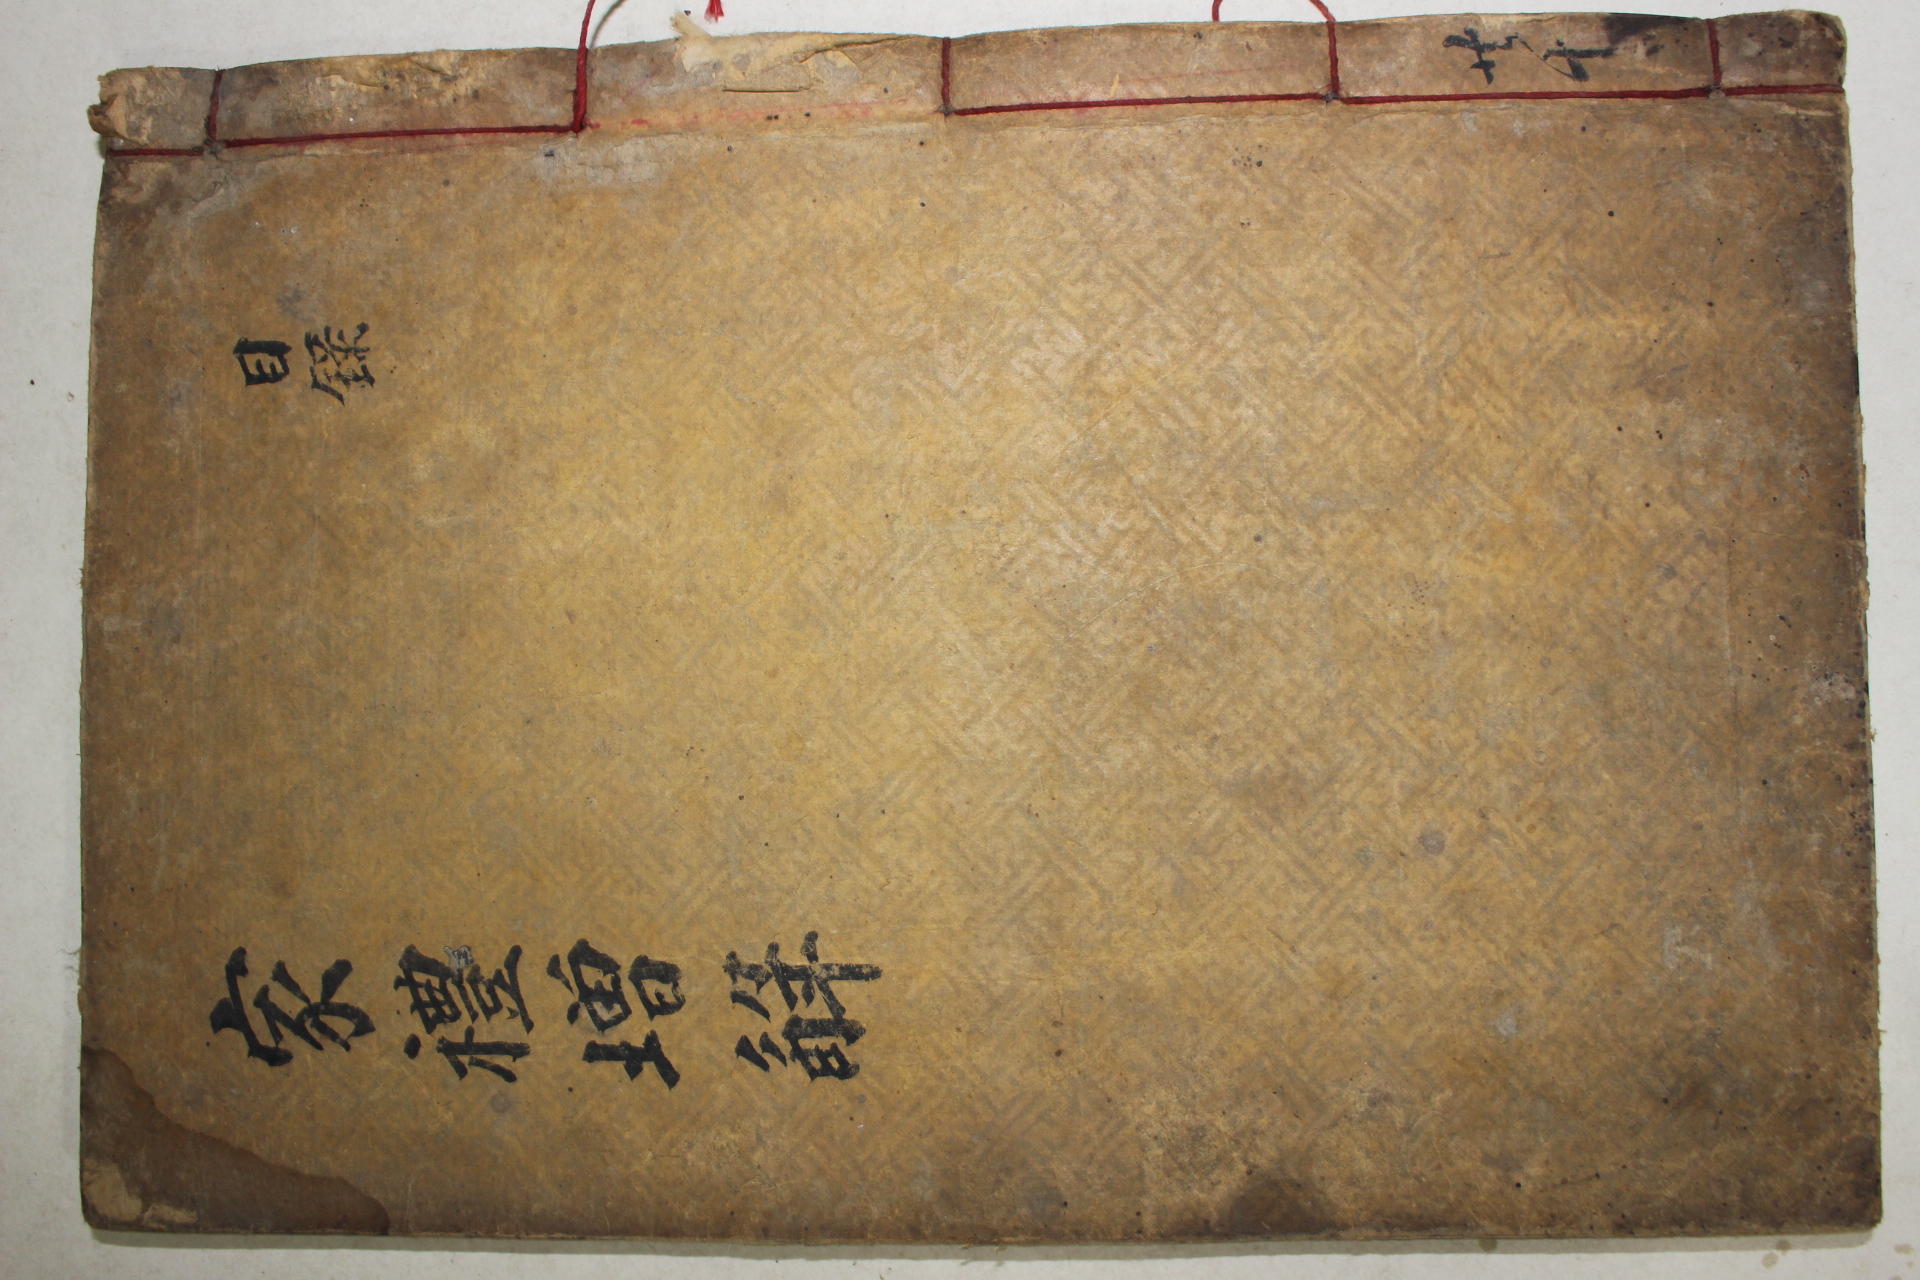 家禮增解
目錄
共十